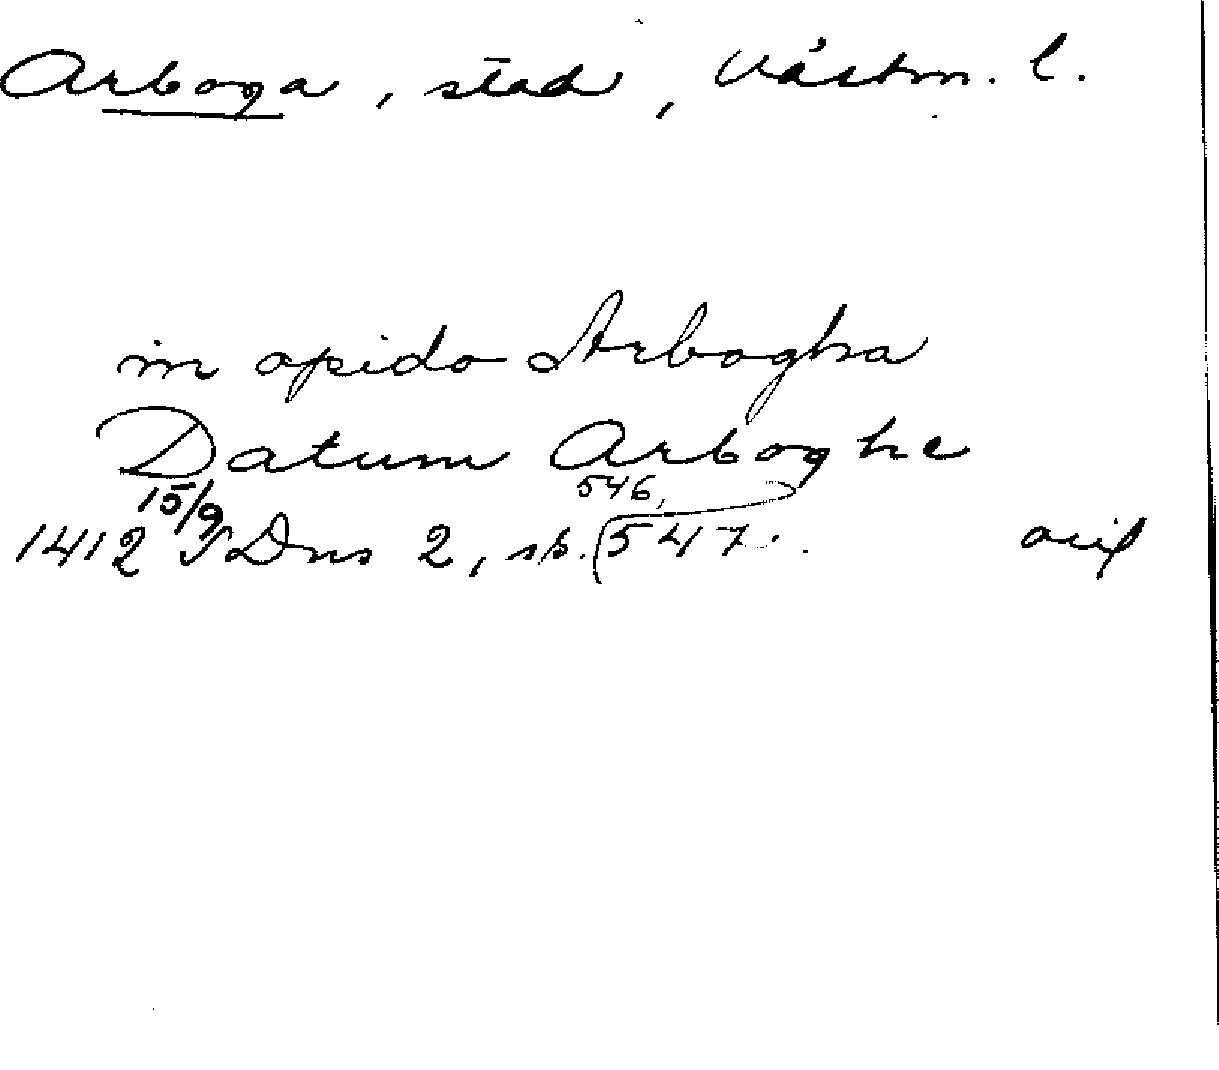 Arboga, stad, Västm. l.
in opido Arbogha
Datum Arboghe
1412 15/9 SDns 2, sh. 546, 547. orig